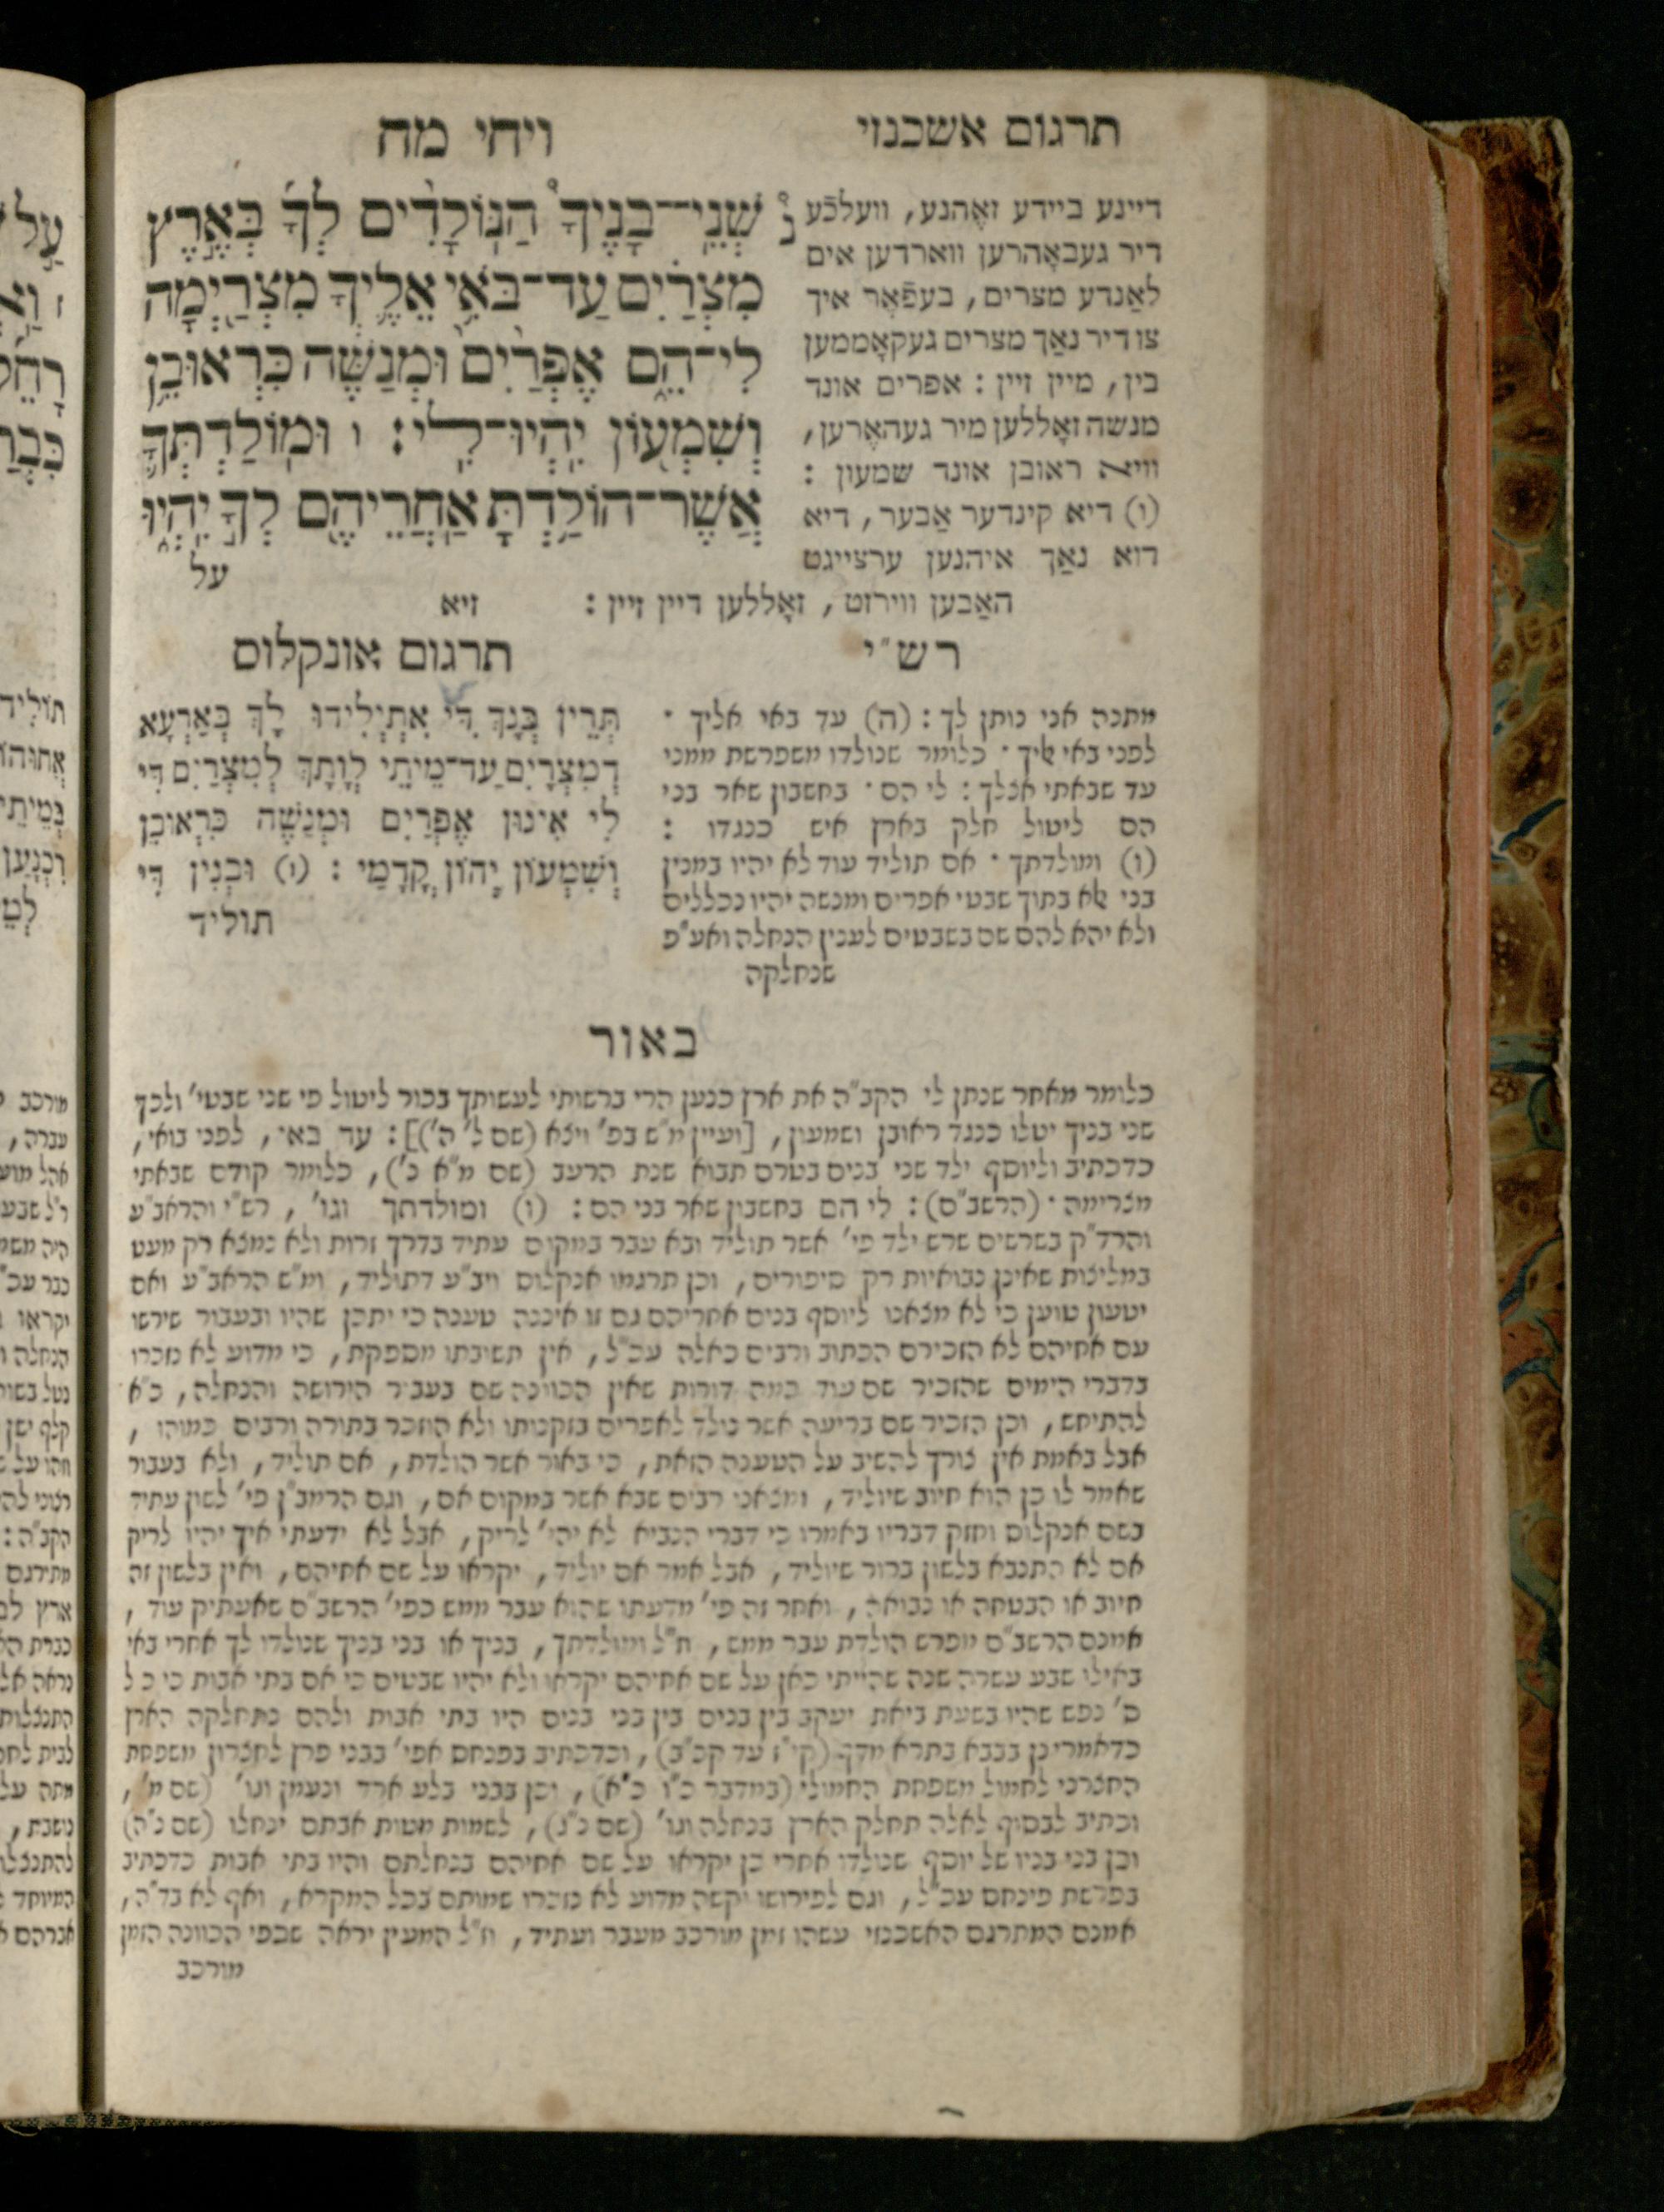 תרגום אשכנזי
ויחי מח
דיינע ביידע זאֶהנע, וועלכֿע
דיר געבאָהרען ווארדען אים
לאַנדע מצרים, בעפֿאָר איך
צו דיר נאַך מצרים געקאָממען
בין, מיין זיין : אפרים אונד
מנשה זאָללען מיר געהאֶרען,
וויא ראובן אונד שמעון :
(ו) דיא קינדער אַבער, דיא
דוא נאַך איהנען ערצייגט
האַבען ווירזט, זאָללען דיין זיין :
זיא
שְׁנֵֽי־בָנֶיךָ֩ הַנּֽוֹלָדִ֨ים לְךָ֜ בְּאֶ֣רֶץ
מִצְרַ֗יִם עַד־בֹּאִ֥י אֵלֶ֛יךָ מִצְרַ֖יְמָה
לִי־הֵ֑ם אֶפְרַ֙יִם֙ וּמְנַשֶּׁ֔ה כִּרְאוּבֵ֥ן
וְשִׁמְע֖וֹן יִֽהְיוּ־לִֽי : ו וּמֽוֹלַדְתְּךָ֛
אֲשֶׁר־הוֹלַ֥דְתָּ אַֽחֲרֵיהֶ֖ם לְךָ֣ יִֽהְי֑וּ
על
רש״י
מתנה אני נותן לך : (ה) עד באי אליך ·
לפני באי אליך · כלומר שנולדו משפרשת ממני
עד שבאתי אצלך : לי הם · בחשבון שאר בני
הם ליטול חלק בארץ איש כנגדו :
(ו) ומולדתך · אם תוליד עוד לא יהיו במנין
בני אלא בתוך שבטי אפרים ומנשה יהיו נכללים
ולא יהא להם שם בשבטים לענין הנחלה ואע״פ
שנחלקה
תרגום אונקלוס
תְּרֵין בְּנָךְ דִּי אִתְיְלִידוּ לָךְ בְּאַרְעָא
דְמִצְרַיִם עַד־מֵיתִי לְוָתָךְ לְמִצְרַיִם דִּי
לִי אִינוּן אֶפְרַיִם וּמְנַשֶּׁה כִּרְאוּבֵן
וְשִׁמְעוֹן יְהוֹן קֳדָמָי : (ו) וּבְנִין דִּי
תוליד
באור
כלומר מאחר שנתן לי הקב״ה את ארץ כנען הרי ברשותי לעשותך בכור ליטול פי שני שבטי׳ ולכך
שני בניך יטלו כנגד ראובן ושמעון, [ועיין מ״ש בפ׳ ויצא (שם ל׳ ה׳)] : עד באי, לפני בואי,
כדכתיב וליוסף ילד שני בנים בטרם תבוא שנת הרעב (שם מ״א נ׳), כלומר קודם שבאתי
מצרימה · (הרשב״ם) : לי הם בחשבון שאר בני הם : (ו) ומולדתך וגו׳, רש״י והראב״ע
והרד״ק בשרשים שרש ילד פי׳ אשר תוליד ובא עבר במקום עתיד בדרך זרות ולא נמצא רק מעט
במליצות שאינן נבואיות רק סיפורים, וכן תרגמו אנקלוס ויב״ע דתוליד, ומ״ש הראב״ע ואם
יטעון טוען כי לא מצאנו ליוסף בנים אחריהם גם זו איננה טענה כי יתכן שהיו ובעבור שירשו
עם אחיהם לא הזכירם הכתוב ורבים כאלה עכ״ל, אין תשיבתו מספקת, כי מדוע לא נזכרו
בדברי הימים שהזכיר שם עוד כמה דורות שאין הכוונה שם בעבור הירושה והנחלה, כ״א
להתיחש, וכן הזכיר שם בריעה אשר נולד לאפרים בזקנותו ולא הוזכר בתורה ורבים כמוהו,
אבל באמת אין צורך להשיב על הטענה הזאת, כי באור אשר הולדת, אם תוליד, ולא בעבור
שאמר לו כן הוא חיוב שיוליד, ומצאנו רבים שבא אשר במקום אם, וגם הרמב״ן פי׳ לשון עתיד
בשם אנקלוס וחזק דבריו באמרו כי דברי הנביא לא יהי׳ לריק, אבל לא ידעתי איך יהיו לריק
אם לא התנבא בלשון ברור שיוליד, אבל אמר אם יוליד, יקראו על שם אחיהם, ואין בלשון זה
חיוב או הבטחה או נבואה, ואחר זה פי׳ מדעתו שהוא עבר ממש כפי׳ הרשב״ם שאעתיק עוד,
אמנם הרשב״ם מפרש הולדת עבר ממש, וז״ל ומולדתך, בניך או בני בניך שנולדו לך אחרי באי
באילו שבע עשרה שנה שהייתי כאן על שם אחיהם יקראו ולא יהיו שבטים כי אם בתי אבות כי כל
ס׳ נפש שהיו בשעת ביאת יעקב בין בנים בין בני בנים היו בתי אבות ולהם נתחלקה הארץ
כדאמרינן בבבא בתרא מדף (קי״ז עד קכ״ב), וכדכתיב בפנחס אפי׳ בבני פרץ לחצרון משפחת
החצרני לחמול משפחת החמולי (במדבר כ״ו כ״א), וכן בבני בלע ארד ונעמן וגו׳ (שם מ׳),
וכתיב לבסוף לאלה תחלק הארץ בנחלה וגו׳ (שם נ״ג), לשמות מטות אבתם ינחלו (שם נ״ה)
וכן בני בניו של יוסף שנולדו אחרי כן יקראו על שם אחיהם בנחלתם והיו בתי אבות כדכתיב
בפרשת פינחס עכ״ל, וגם לפירושו יקשה מדוע לא נזכרו שמותם בכל המקרא, ואף לא בד״ה,
אמנם המתרגם האשכנזי עשהו זמן מורכב מעבר ועתיד, וז״ל המעין יראה שכפי הכוונה הזמן
מורכב